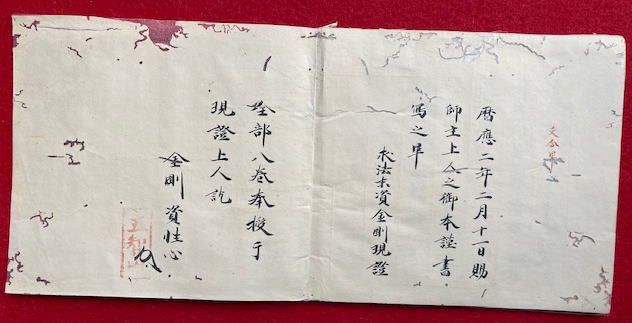 交合畢
曆應二年二月十一日賜
師主上人之御本謹書
写之畢
求法末資金剛現證
全部八巻奉授于
現證上人訖
金剛資性心